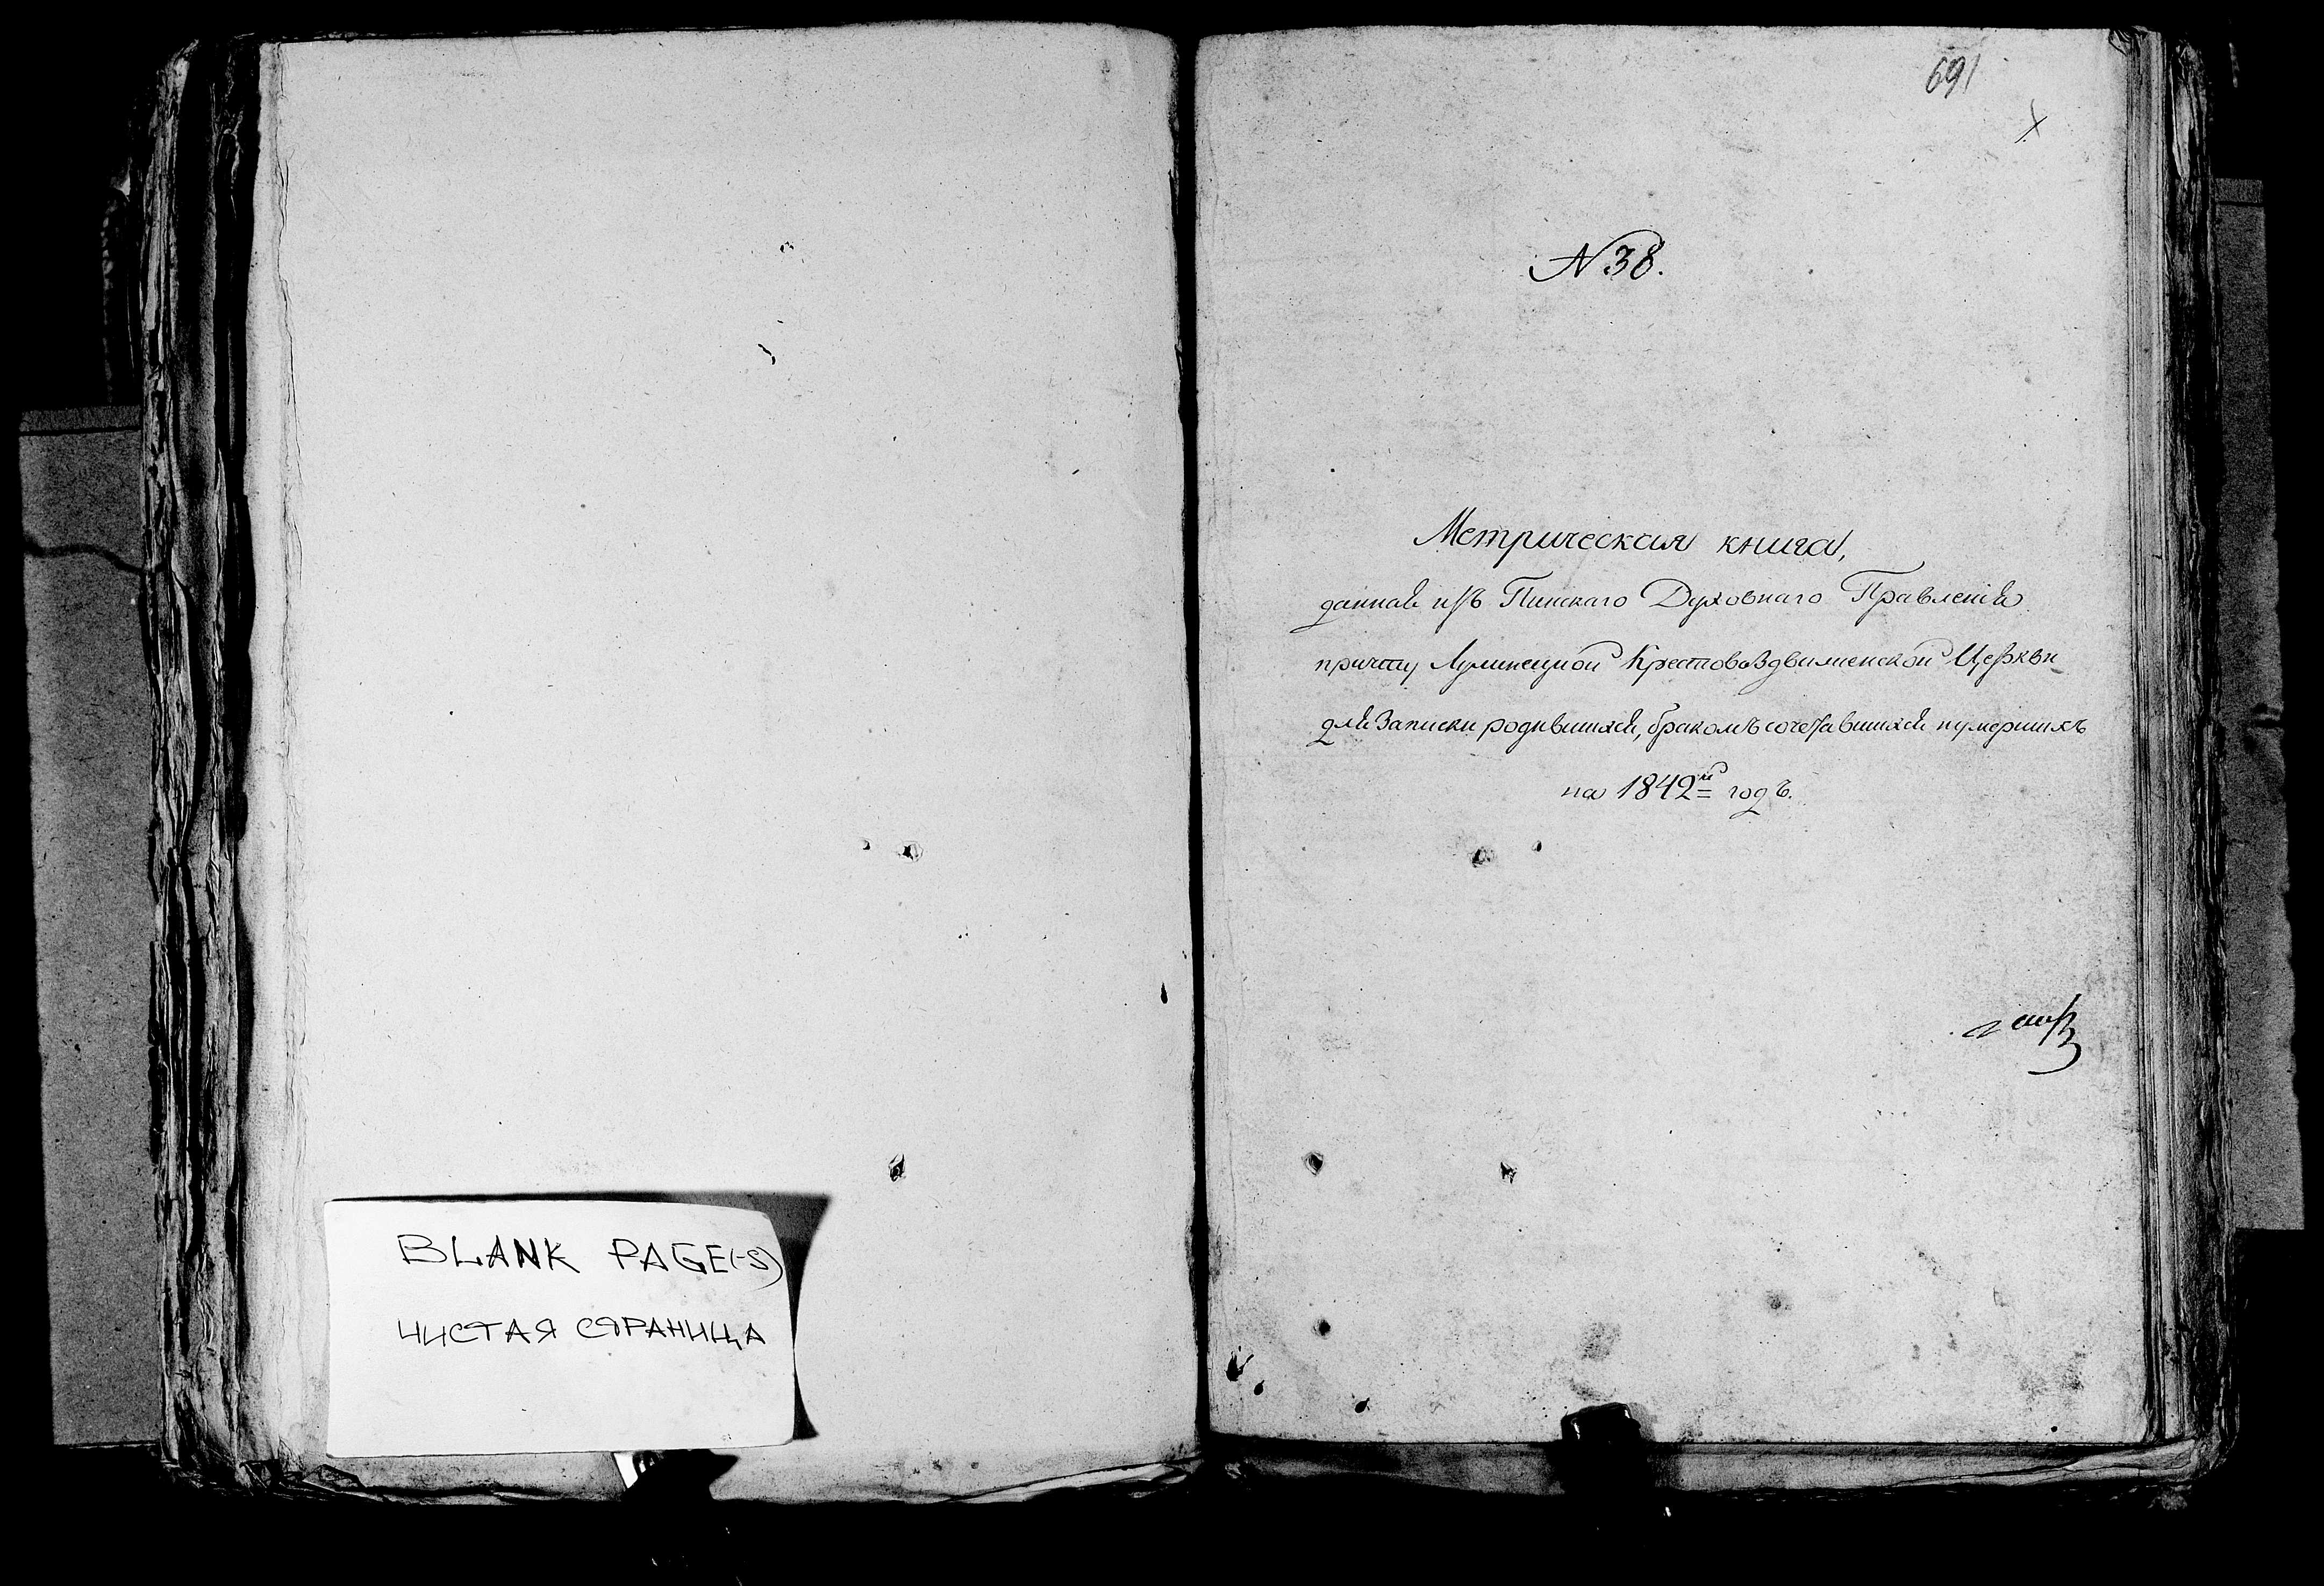 BLANK PAGE(-S)
ЧИСТАЯ СТРАНИЦА
691
N 38.
Метрическая книга,
данная изъ Пинскаго Духовнаго Правленія
причту Лунинецкой Крестовоздвиженской Церкви
для Записки родившихся, бракомъ сочетавшихся и умершихъ
на 1842й годъ.